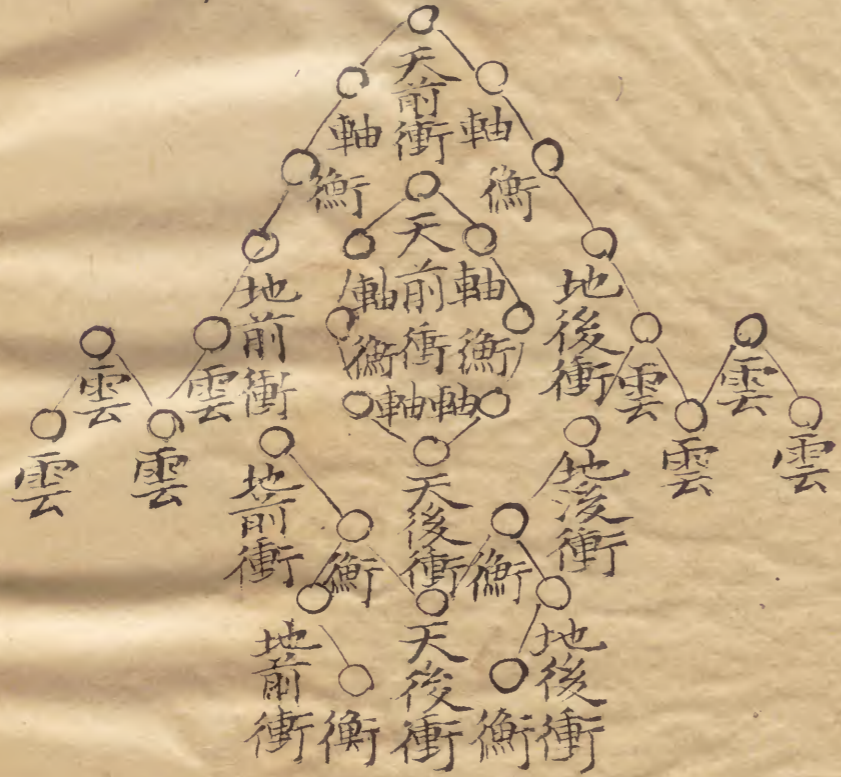 天前衝
軸 軸
衡 衡
天前衝
軸 軸
衡 衡
軸 軸
地前衝 地後衝
雲 雲 雲 雲
雲 雲 雲 雲
地前衝 天後衝 地後衝
衡 衡
地前衝 衡 天後衝 衡 地後衝